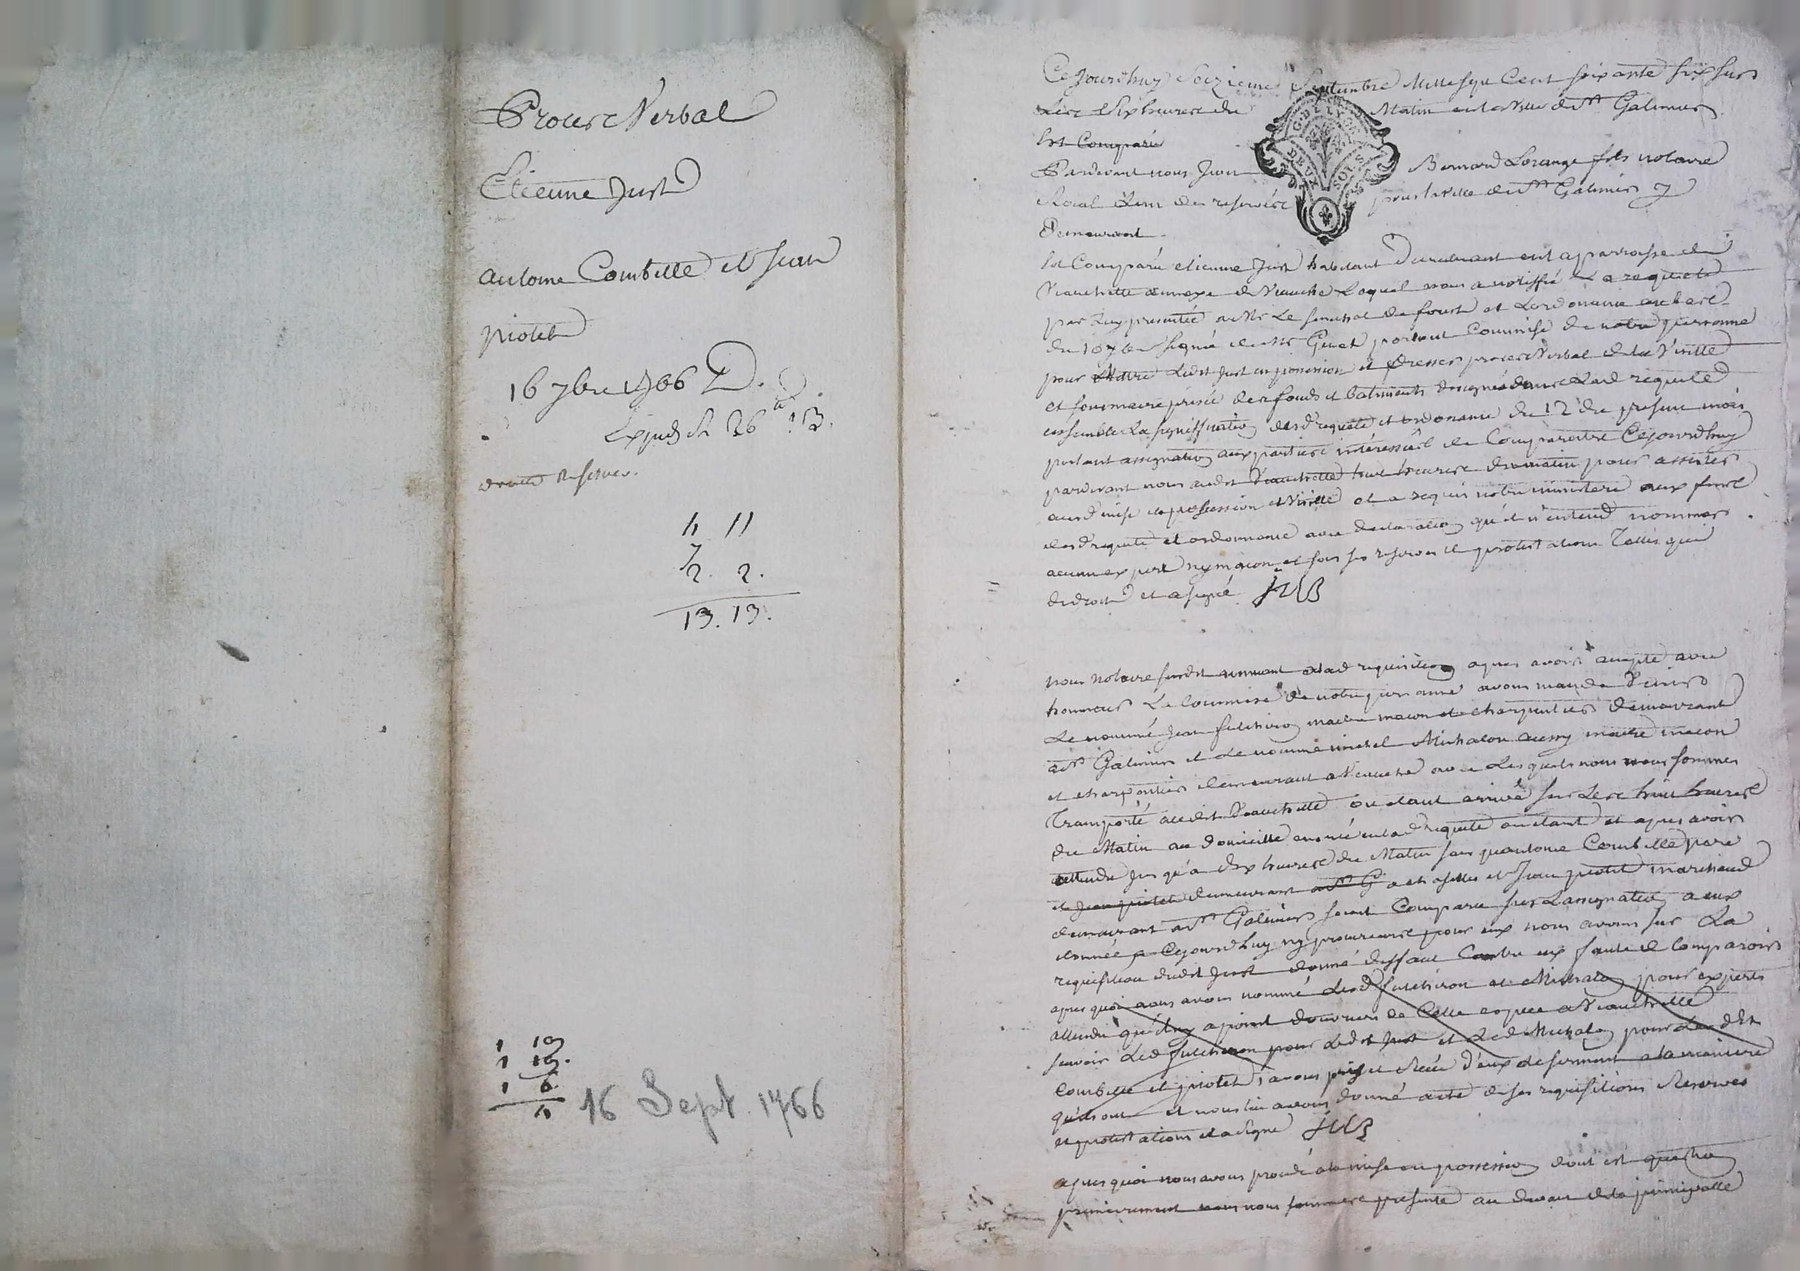 Proces Verbal
Etienne Just
antoine Combelle et Jean
piotet
16 7bre 1766 D.
Expedié 26
droits Reservés.
11 11
2. 2.
13. 13.
1 19
1 10.
1 6
4
16 Sept. 1766
G. DE LYON
DEUX SOLS
Cejourdhuy Seizieme Septembre Mille sept Cent soixante six sur
Les dix heures du Matin en la Ville de St Galmier
Est Comparu
Pardevant nous Jean Bernard Lorange fils notaire
Roial pour la Ville de St Galmier y
Demeurant.
Est Comparu etienne Just habitant Demeurant en la parroisse de
Viauchette annexe de Lequel nous a notiffié La requete
par Luy presentée a Mr Le senechal de forest et Lordonnance au bas
du 10 7bre signée de Mr portant Commise de notre personne
pour Mettre Ledit Just en possession et dresser proces Verbal de la Visitte
et sommaire prisée des fonds et batiments designés dans Lad requete
ensemble La signiffication desd requete et ordonance du 12 du present mois
portant assignation aux parties interessées de Comparoitre Cejourdhuy
pardevant nous audit Viauchette huit heures du matin pour assister
auxd mise en possession et Visitte et a requis notre ministere aux fins
desd requete et ordonnance avec declaration qu'il n'entend nommer
aucun expert ny maçon et sous ses reserves et protestations Telles que
de droit et a signé Just
nous notaire susdit a lad requisition apres avoir accepté avec
honneur La Commise de notre personne avons mandé Venir
Le nommé Jean futchiron maitre macon et charpentier demeurant
a St Galmier et Le nommé michel Michalon aussy maitre macon
et charpentier demeurant a avec Lesquels nous nous sommes
Transporté audit Viauchette ou etant arrivé sur Les huit heures
du Matin au domicille enoncé en lad requete ou etant et apres avoir
attendu jusqu'a dix heures du Matin sans qu'antoine Combelle pere
et Jean piotet demeurant a St G a et Jean piotet marchand
demeurant a St Galmier soient Comparu sur Lassignation a eux
donnée a Cejourdhuy ny procureurs pour eux nous avons sur La
requisition dudit Just donné deffaut Contre eux faute de Comparoir
apres quoi nous avons nommé Lesd futchiron et Michalon pour experts
attendu qu'il ny a point douvriers de Cette espece a Viauchette
savoir Led futchiron pour Ledit Just et Led Michalon pour Lesdits
Combelle et piotet, avons pris et Reçu d'eux Le serment a la maniere
qu'ils ont et nous lui avons donné acte de ses requisitions Reserves
et protestations et a signé Just
apres quoi nous avons procedé a la mise en possession dont est question
premierement nous nous sommes presenté au devant de la principalle